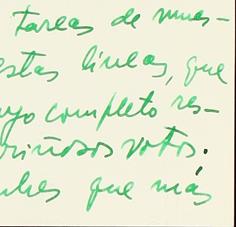 tareas de nues-
estas líneas, que
yo completo res-
riñosos votos.
que más